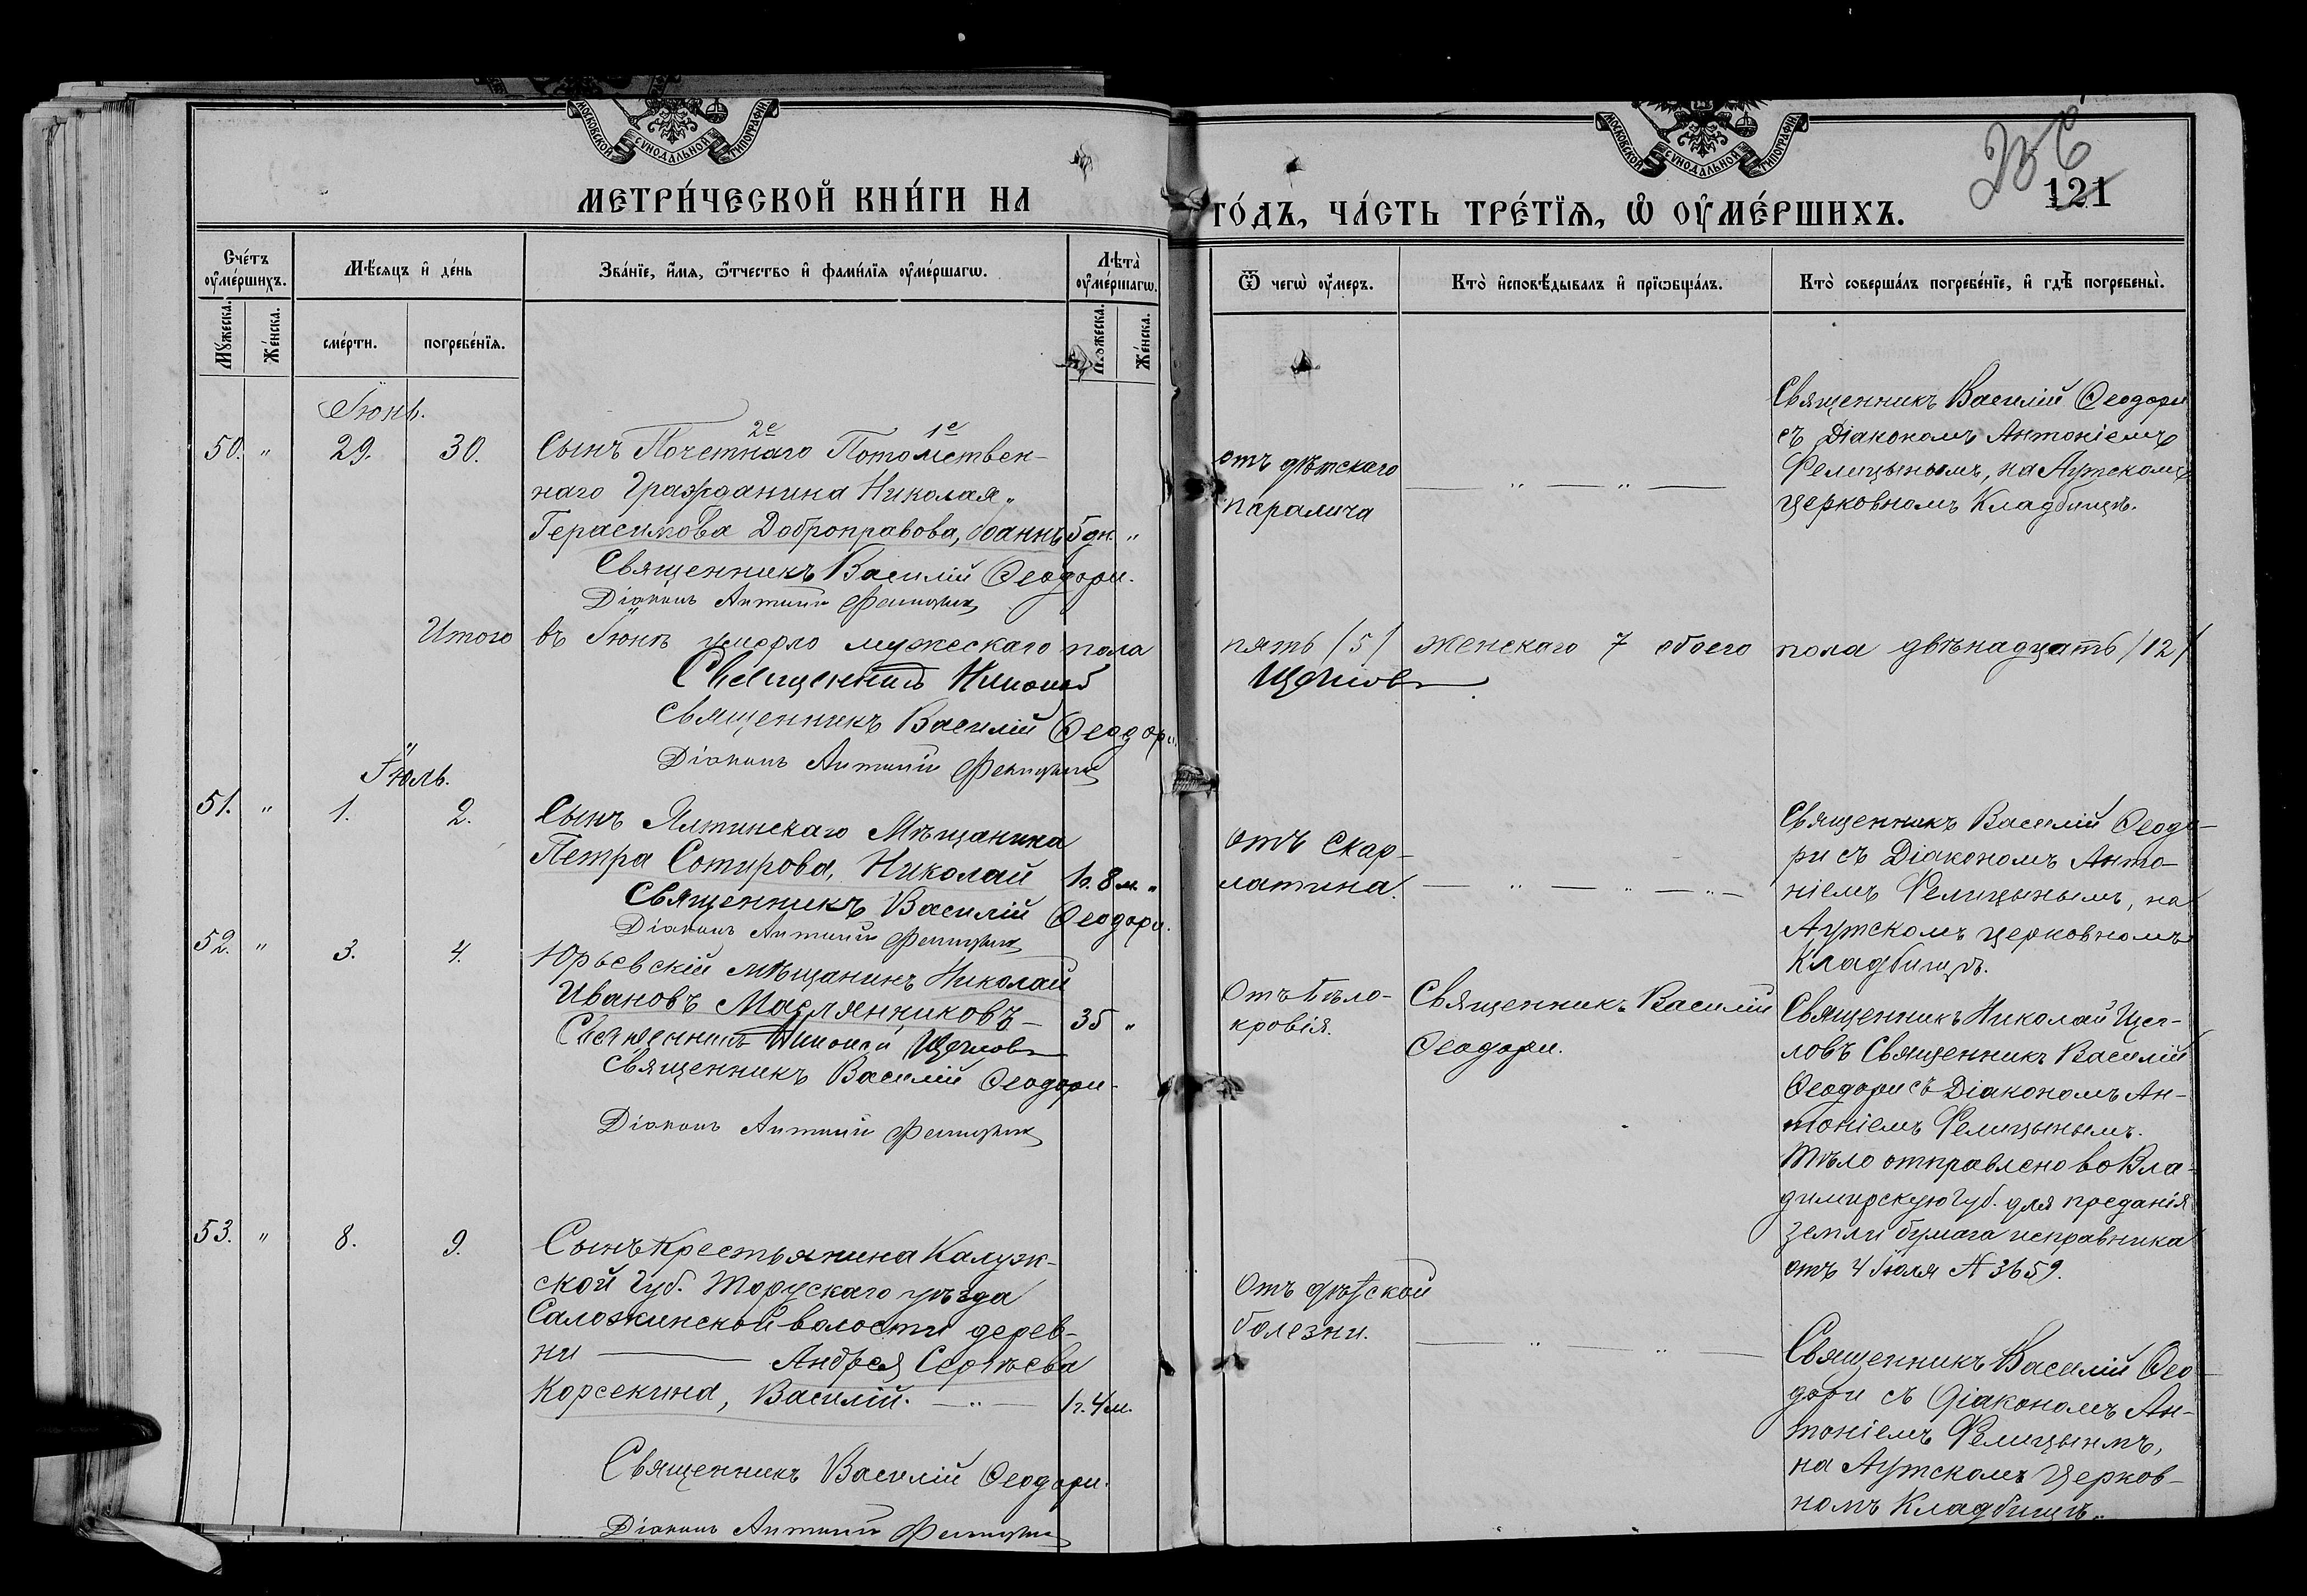 МОСКОВСКОЙ СУНОДАЛЬНОЙ ТИПОГРАФІИ
МОСКОВСКОЙ СУНОДАЛЬНОЙ ТИПОГРАФІИ
121
МЕТРИ́ЧЕСКОЙ КНИ́ГИ НА
ГО́ДЪ, ЧА́СТЬ ТРЕ́ТЇѦ, Ѡ҆ ОУ҆МЕ́РШИХЪ.
Сче́тъ оу҆ме́ршихъ.
Мꙋ́жеска.
Же́нска.
Мѣ́сяцъ и҆ де́нь
сме́рти.
погребе́нїя.
Зва́нїе, и҆́мя, ѻ҆́тчество и҆ фами́лїя оу҆ме́ршагѡ.
Лѣ́та оу҆ме́ршагѡ.
Мꙋ́жеска.
Же́нска.
Ѿ чегѡ̀ оу҆́меръ.
Кто̀ и҆сповѣ́дывалъ и҆ прїѡбща́лъ.
Кто̀ соверша́лъ погребе́нїе, и҆ гдѣ̀ погребены̀.
Іюнь.
50. " 29. 30.
2е 1е
Сынъ Почетнаго Потомствен-
наго Гражданина Николая
Герасимова Добронравова, Іоаннъ 5 дн. "
Священникъ Василій Ѳеодори.
Діаконъ Антоній Фелицынъ
отъ дѣтскаго
паралича
— " — " —
Священникъ Василій Ѳеодори
съ Діакономъ Антоніемъ
Фелицынымъ, на Аутскомъ
церковномъ Кладбищѣ.
Итого въ Іюнѣ умерло мужескаго пола пять /5/ женскаго 7 обоего пола двѣнадцать /12/
Священникъ Николай Щегловъ
Священникъ Василій Ѳеодори
Діаконъ Антоній Фелицынъ
Іюль.
51. " 1. 2.
Сынъ Ялтинскаго Мѣщанина
Петра Сотирова, Николай 1г. 8 м. "
Священникъ Василій Ѳеодори.
Діаконъ Антоній Фелицынъ
отъ Скар-
латина.
— " — " — " —
Священникъ Василій Ѳеодо-
ри съ Діакономъ Анто-
ніемъ Фелицынымъ, на
Аутскомъ церковномъ
Кладбищѣ.
52. " 3. 4.
Юрьевскій мѣщанинъ Николай
Ивановъ Маслянниковъ — 35 "
Священникъ Николай Щегловъ
Священникъ Василій Ѳеодори-
Діаконъ Антоній Фелицынъ
Отъ бѣло-
кровія.
Священникъ Василій
Ѳеодори.
Священникъ Николай Щег-
ловъ Священникъ Василій
Ѳеодори съ Діакономъ Ан-
тоніемъ Фелицынымъ.
Тѣло отправлено во Вла-
димирскую Губ. для преданія
земли бумага исправника
отъ 4 Іюля № 3659.
53. " 8. 9.
Сынъ Крестьянина Калуж-
ской Губ. Торускаго уѣзда
волости дерев-
ни — Андрея Сергѣева
Корсекина, Василій. — " — 1г. 4 м.
Священникъ Василій Ѳеодори.
Діаконъ Антоній Фелицынъ
Отъ дѣтской
болезни.
— " — " —
Священникъ Василій Ѳео-
дори съ Діакономъ Ан-
тоніемъ Фелицынмъ,
на Аутскомъ Церков-
номъ Кладбищѣ.